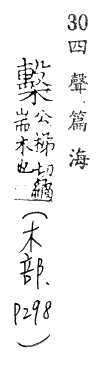 30四聲篇海
檕公梯切繘耑木也(木部,P298)